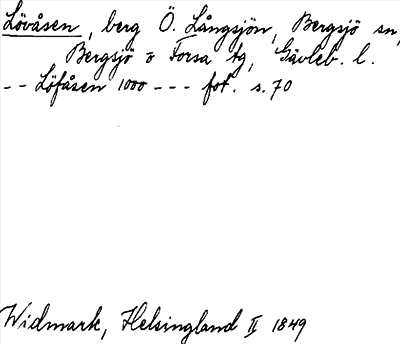 Lövåsen, berg Ö. Långsjön, Bergsjö sn,
Bergsjö o Forsa tg, Gävleb. l.
-- Löfåsen 1000 --- fot. s. 70
Widmark, Helsingland II 1849